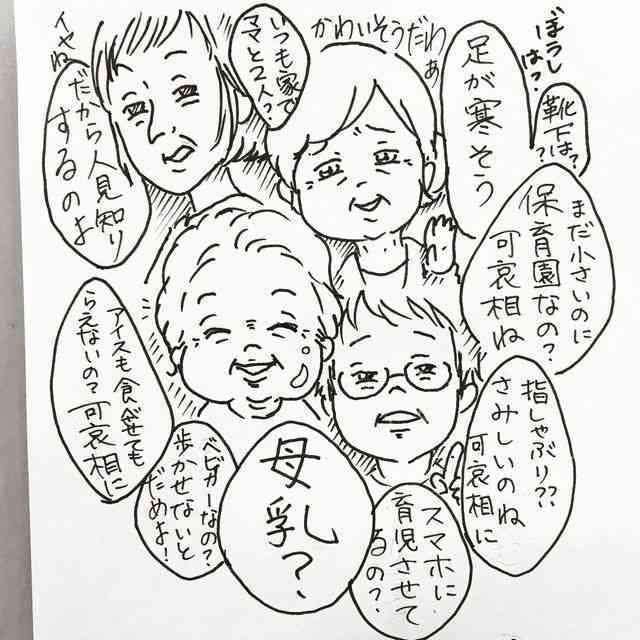 ぼうしは？
靴下は？
足が寒そう
かわいそうだわぁ
いつも家で
ママと2人？
イヤね
だから人見知り
するのよ
まだ小さいのに
保育園なの？
可哀相ね
アイスも食べせても
らえないの？
可哀相に
指しゃぶり??
さみしいのね
可哀相に
ベビカーなの？
歩かせないと
だめよ！
母乳？
スマホに
育児させて
るの？